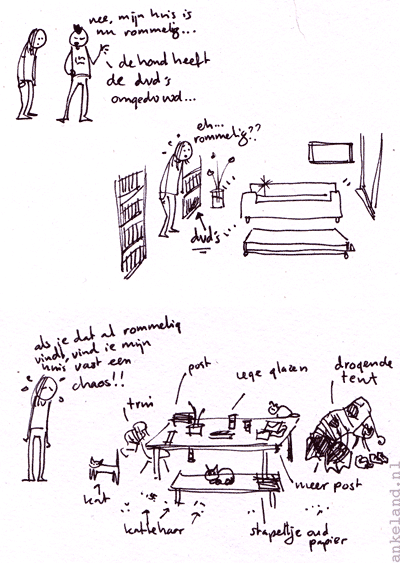 nee, mijn huis is
nu rommelig...
de hond heeft
de dvd's
omgeduwd...
eh...
rommelig??
dvd's
als je dat al rommelig
vindt, vind je mijn
huis vast een
chaos!!
trui
post
lege glazen
drogende
tent
kat
kattehaar
meer post
stapeltje oud
papier
ankeland.nl